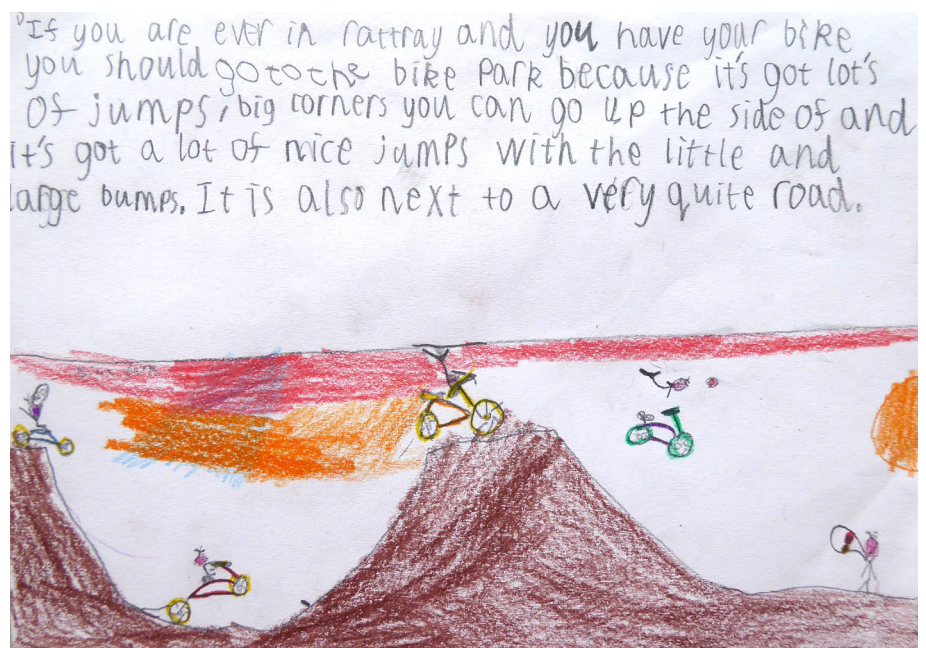 If you are ever in rattray and you have your bike
you should go to the bike park because it's got lot's
Of jumps, big corners you can go up the side of and
it's got a lot of nice jumps with the little and
large bumps. It is also next to a very quite road.